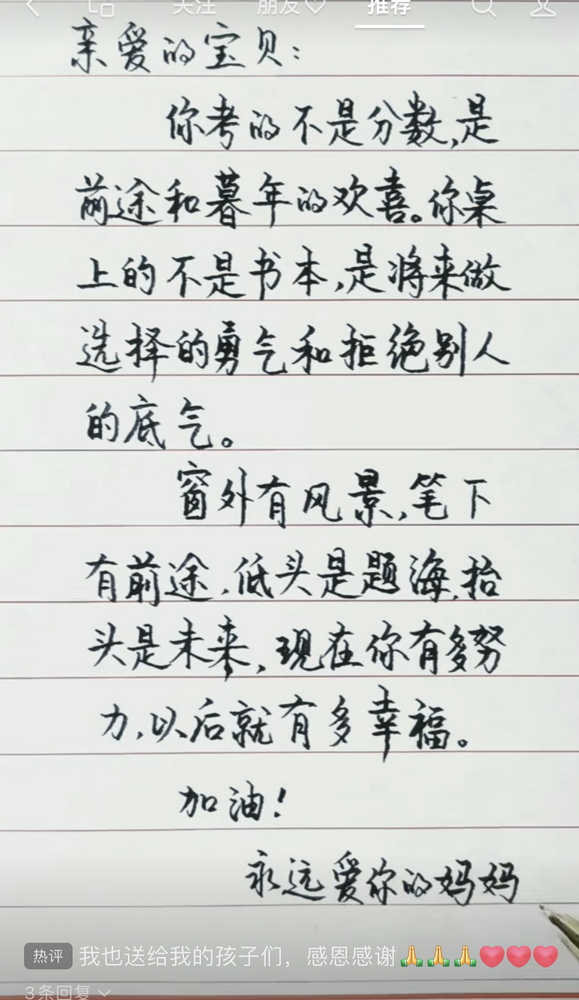 关注 朋友♡ 推荐
亲爱的宝贝:
你考的不是分数,是
前途和暮年的欢喜。你桌
上的不是书本,是将来做
选择的勇气和拒绝别人
的底气。
窗外有风景,笔下
有前途,低头是题海,抬
头是未来,现在你有多努
力,以后就有多幸福。
加油!
永远爱你的妈妈
热评 我也送给我的孩子们，感恩感谢🙏🙏🙏❤️❤️❤️
3条回复